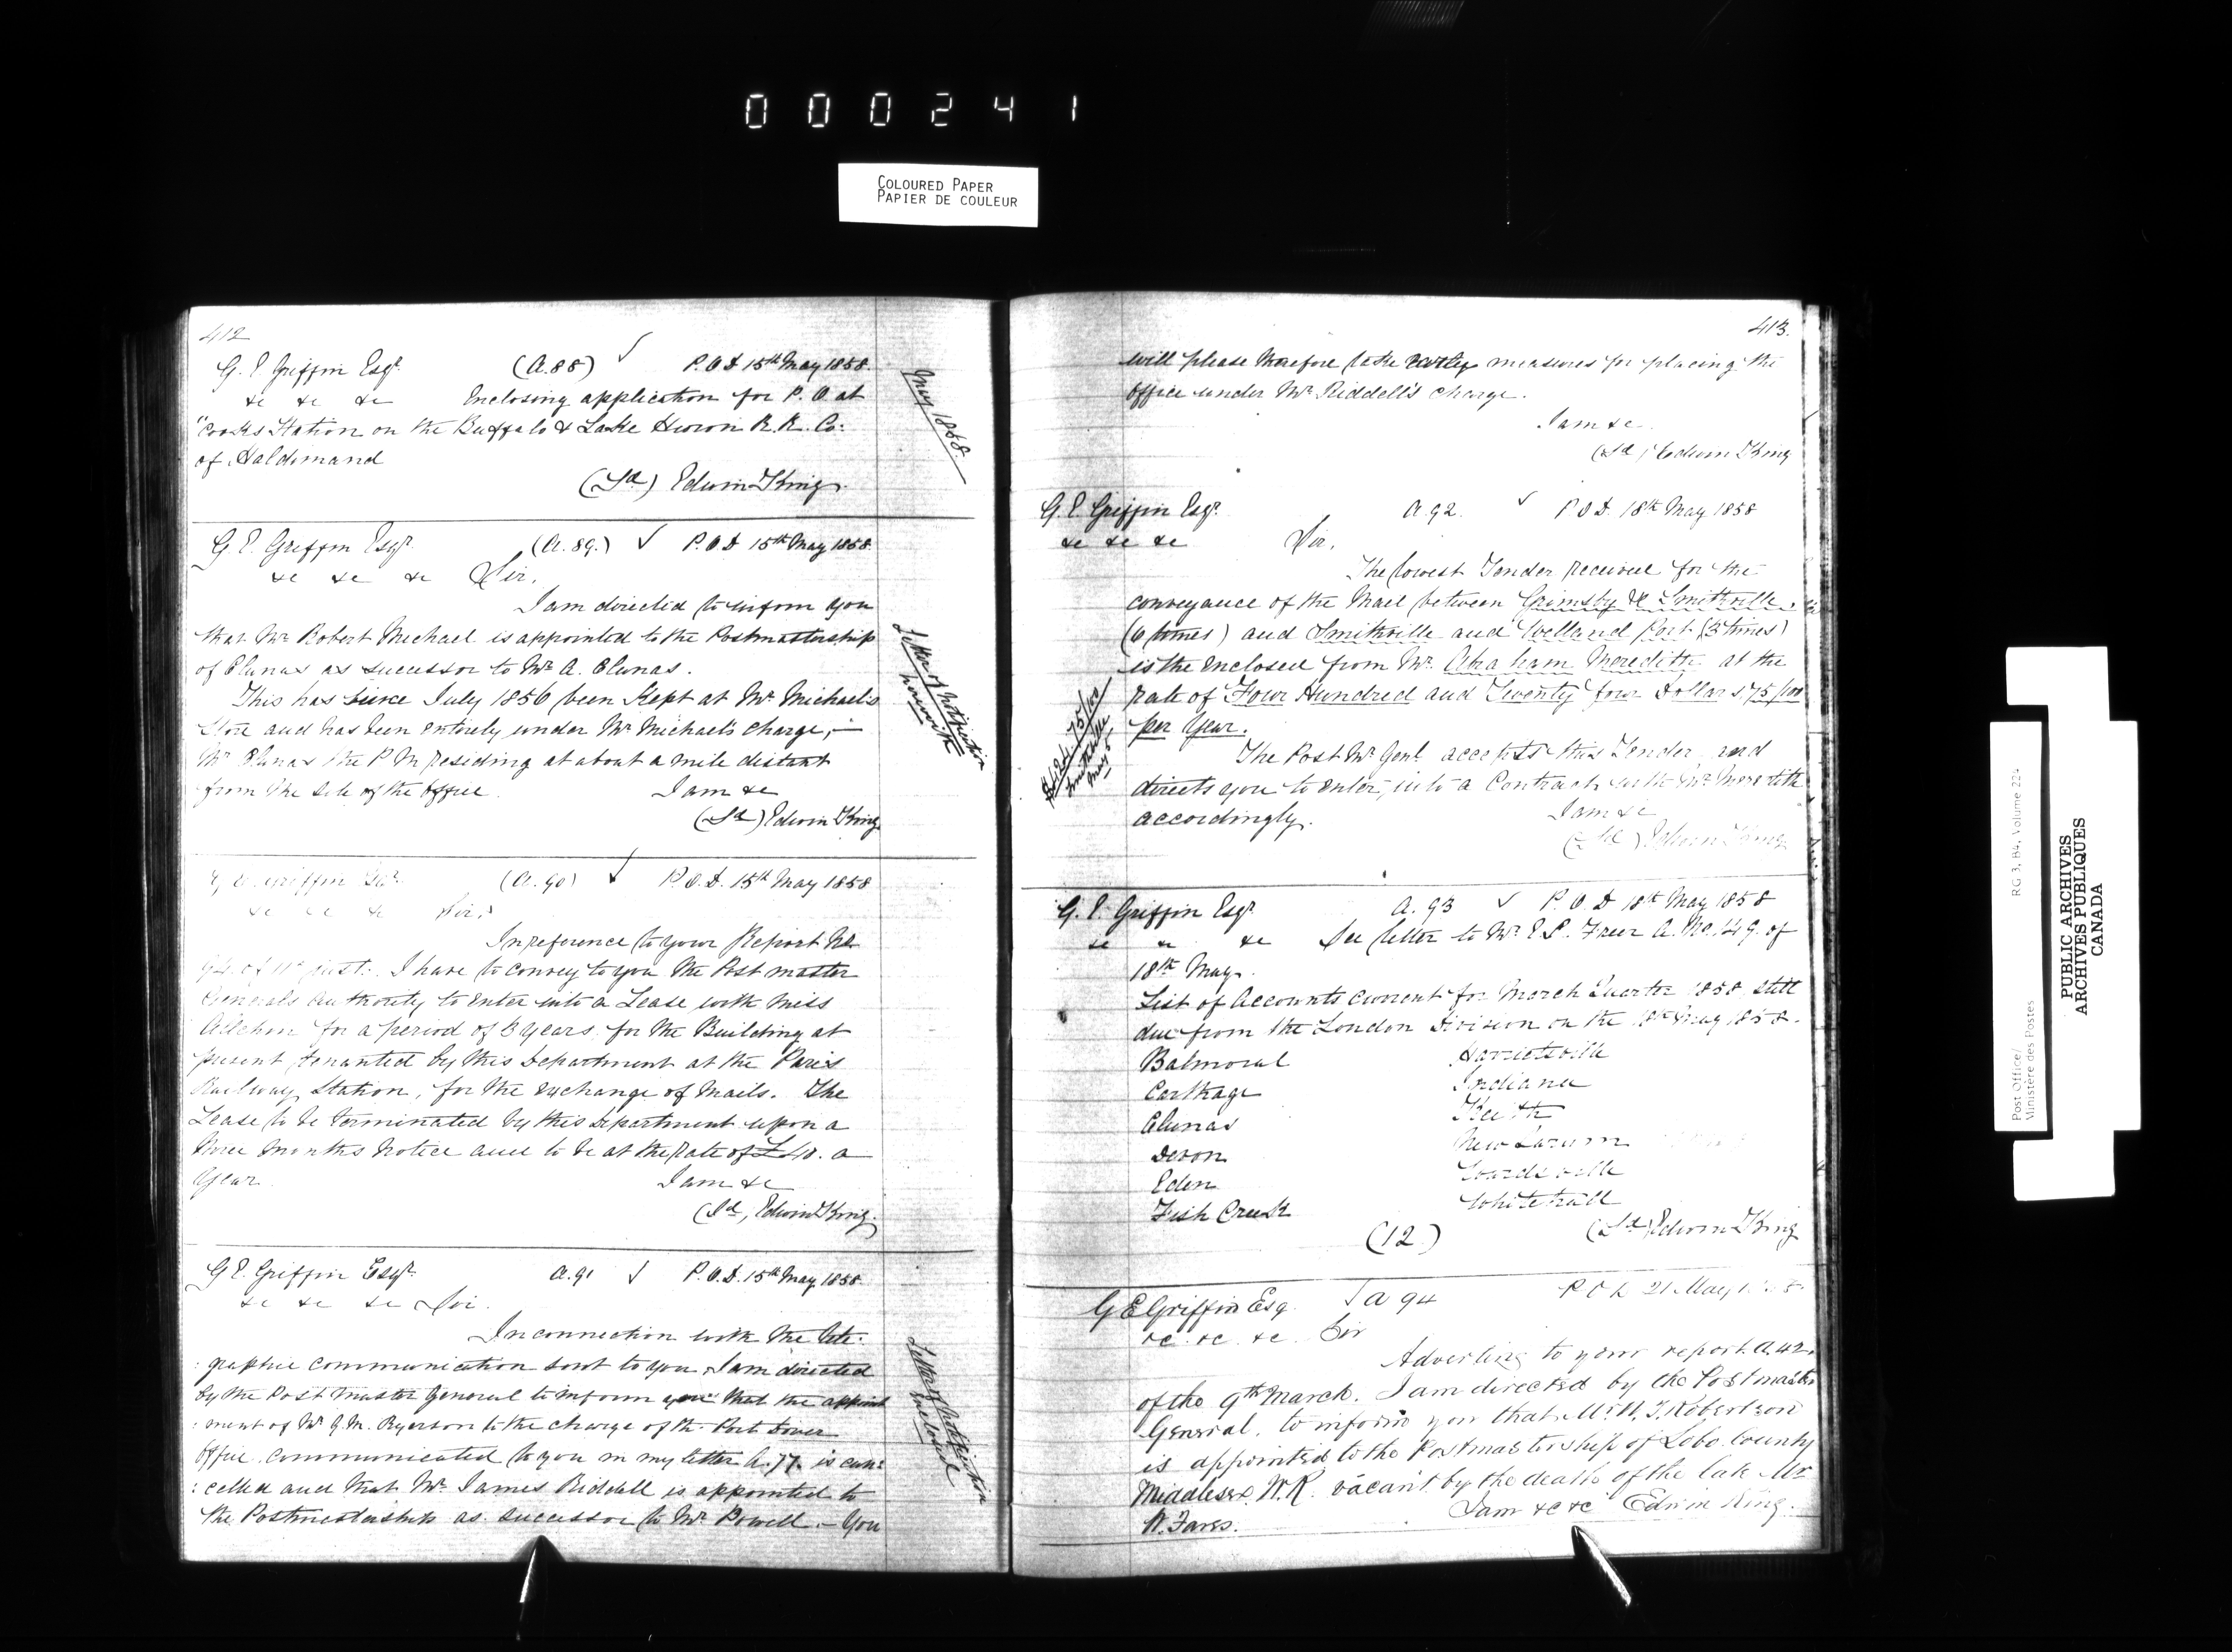 000241
COLOURED PAPER
PAPIER DE COULEUR
412
G. E Griffin Esqr. (A.88) ✓ P.O.D 15th May 1858.
&c &c &c Enclosing application for P.O at
"Cooks Station on the Buffalo & Lake Huron R.R. Co:
of Haldimand
(Sd) Edwin King.
May 1858.
G. E. Griffin Esqr. (A.89.) ✓ P.O.D 15th May 1858
&c &c &c Sir,
I am directed to inform you
that Mr Robert Michael is appointed to the Postmastership
of Clunas as sucessor to Mr A. Clunas.
This has since July 1856 been kept at Mr Michael's
Store and has been entirely under Mr Michael's charge, —
Mr Clunas the P M residing at about a mile distant
from the site of the office. I am &c
(Sd) Edwin King
Letter of Notification
herewith
G. E. Griffin Esqr. (A.90) ✓ P.O.D. 15th May 1858
&c &c &c Sir,
In reference to your Report No
94 of 11th inst. I have to convey to you the Post master
Generals authority to enter into a Lease with Miss
for a period of 3 years for the Building at
present tenanted by this Department at the Paris
Railway Station, for the exchange of Mails. The
Lease to be terminated by this Department upon a
three months notice and to be at the rate of £40. a
Year. I am &c
(Sd, Edwin King.
G E. Griffin Esqr. A.91 ✓ P.O.D. 15th May 1858
&c &c &c Sir.
In connection with the tele:
:graphic communication sent to you I am directed
by the Post Master General to inform you that the appoint
:ment of Mr G. M. Ryerson to the charge of the Port Dover
Office communicated to you in my letter A.77. is can:
:celled and that Mr James Riddell is appointed to
the Postmastership as successor to Mr Powell. — You
Letter of Notification
enclosed
413.
will please therefore take early measures for placing the
office under Mr Riddell's charge.
I am &c.
(Sd) Edwin King
G. E. Griffin Esqr. A.92. ✓ P.O.D. 18th May 1858
&c &c &c Sir,
The lowest Tender received for the
conveyance of the Mail between Grimsby & Smithville.
(6 times) and Smithville and Welland Port (3 times)
is the enclosed from Mr. Abraham Meredith at the
rate of Four Hundred and Twenty four Dollars 75/100
per Year.
The Post Mr Genl. accepts this Tender and
directs you to enter into a Contract with Mr Meredith
accordingly. I am &c
(Sd) Edwin King
Smithville
G. E. Griffin Esqr. A. 93 ✓ P.O.D 18th May 1858
&c &c &c See letter to Mr E. S. Freer A. No. 149. of
18th May.
List of Accounts current for March Quarter 1858 still
due from the London Division on the 18th May 1858.
Balmoral Harrietsville
Carthage Indiana
Clunas Keith
Devon New Sarum
Eden Wardsville
Fish Creek Whitehall
(12) (Sd) Edwin King
G E Griffin Esq. ✓ A 94 P O D 21 May 1858
&c. &c. &c. Sir
Adverting to your report A.42.
of the 9th March. I am directed by the Postmaster
General, to inform you that Mr. W. T. Robertson
is appointed to the Postmastership of Lobo. County
Middlesex. W.R. vacant by the death of the late Mr
I am &c &c Edwin King.
Post Office/
Ministère des Postes
RG 3, B4, Volume 224
PUBLIC ARCHIVES
ARCHIVES PUBLIQUES
CANADA